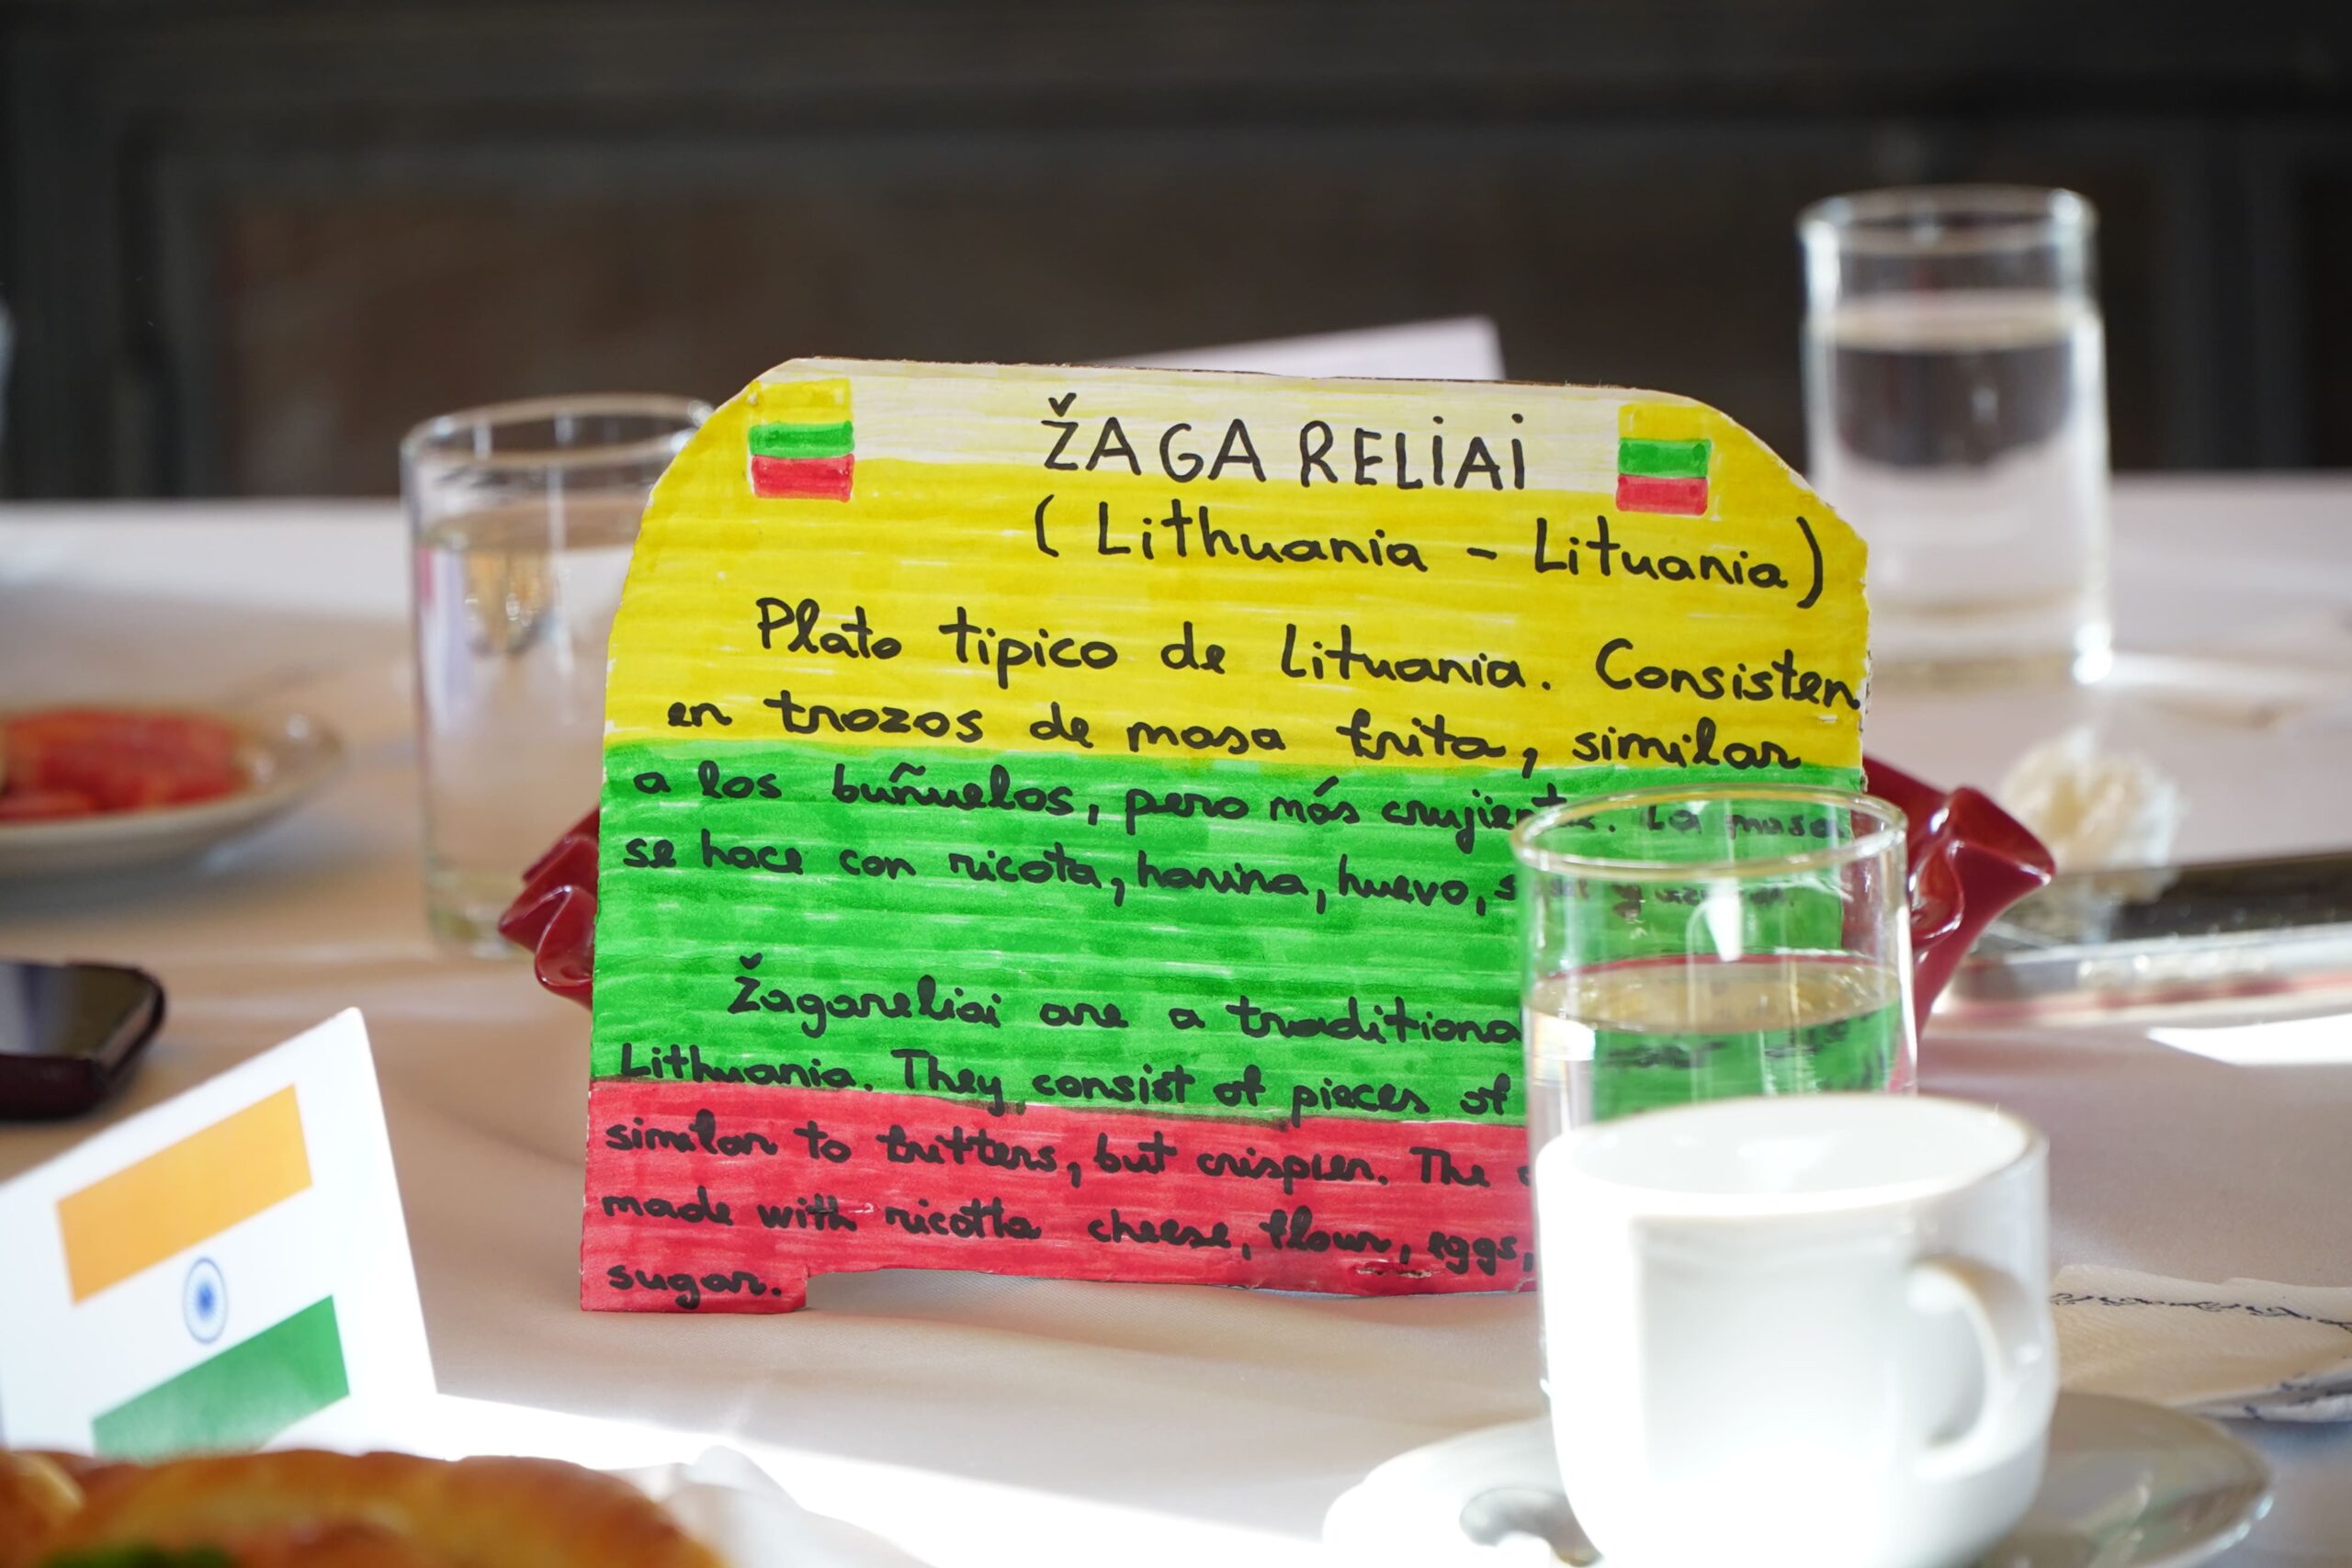 ŽAGARELIAI
(Lithuania - Lituania)
Plato tipico de Lituania. Consisten
en trozos de masa frita, similar
a los buñuelos, pero más crujientes. La masa
se hace con ricota, harina, huevo,
Žagareliai are a traditional
Lithuania. They consist of pieces of
similar to fritters, but crispier. The
made with ricotta cheese, flour, eggs,
sugar.